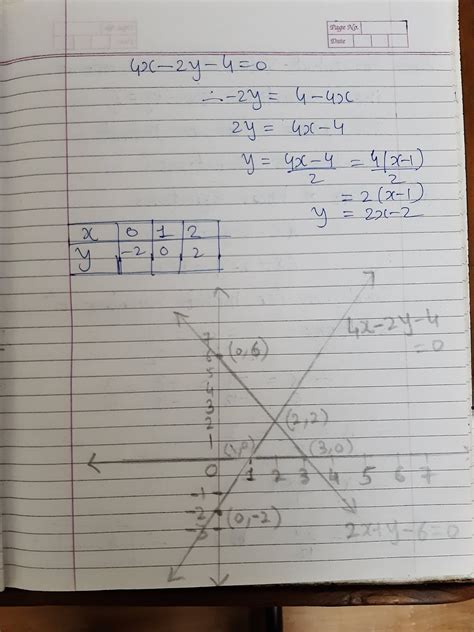 Page No.
Date
4x-2y-4=0
∴-2y = 4-4x
2y = 4x-4
y = 4x-4/2 = 4(x-1)/2
= 2(x-1)
y = 2x-2
x 0 1 2
y -2 0 2
4x-2y-4
=0
7
6 (0,6)
5
4
3
2 (2,2)
1 (1,0) (3,0)
0 1 2 3 4 5 6 7
-1
-2 (0,-2)
-3
2x+y-6=0